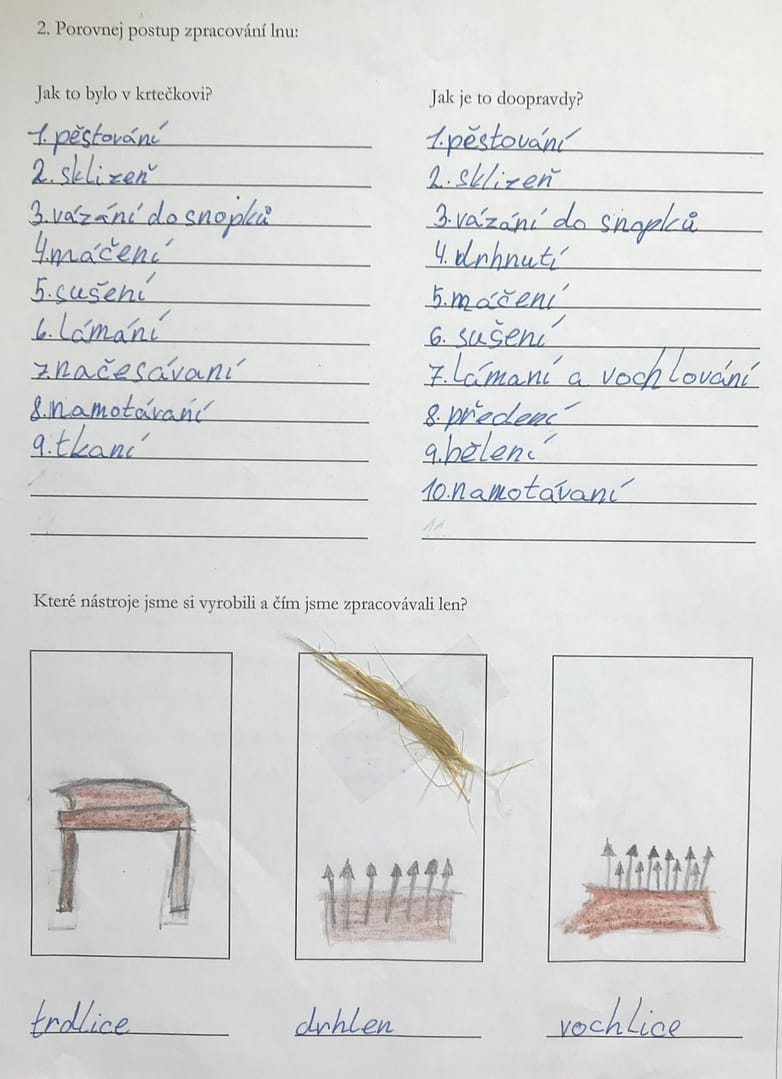 2. Porovnej postup zpracování lnu:
Jak to bylo v krtečkovi?
1. pěstování
2. sklizeň
3. vázání do snopků
4. máčení
5. sušení
6. lámání
7. načesávaní
8. namotávaní
9. tkaní
Jak je to doopravdy?
1. pěstování
2. sklizeň
3. vázání do snopků
4. drhnutí
5. máčení
6. sušení
7. lámaní a vochlování
8. předení
9. bělení
10. namotávaní
11.
Které nástroje jsme si vyrobili a čím jsme zpracovávali len?
trdlice
drhlen
vochlice